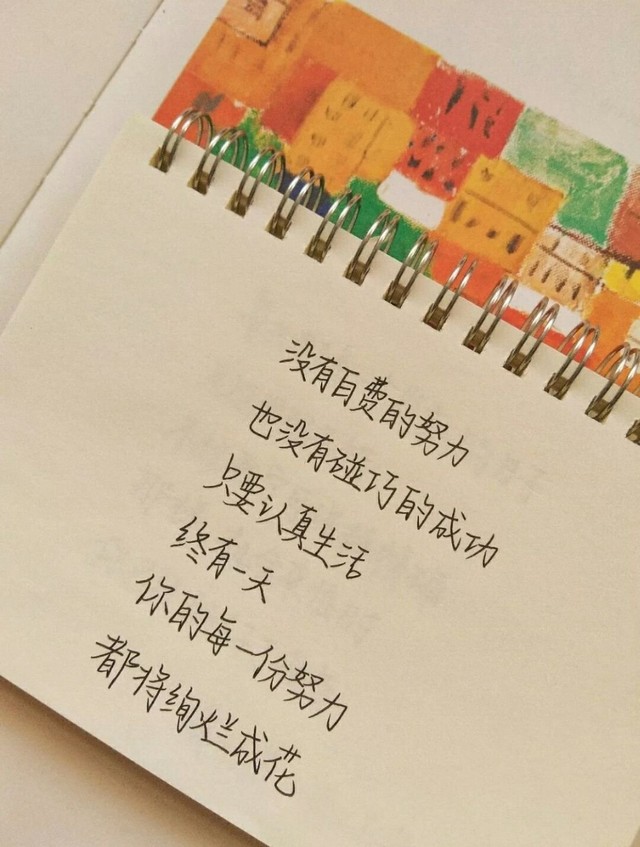 没有白费的努力
也没有碰巧的成功
只要认真生活
终有一天
你的每一份努力
都将绚烂成花